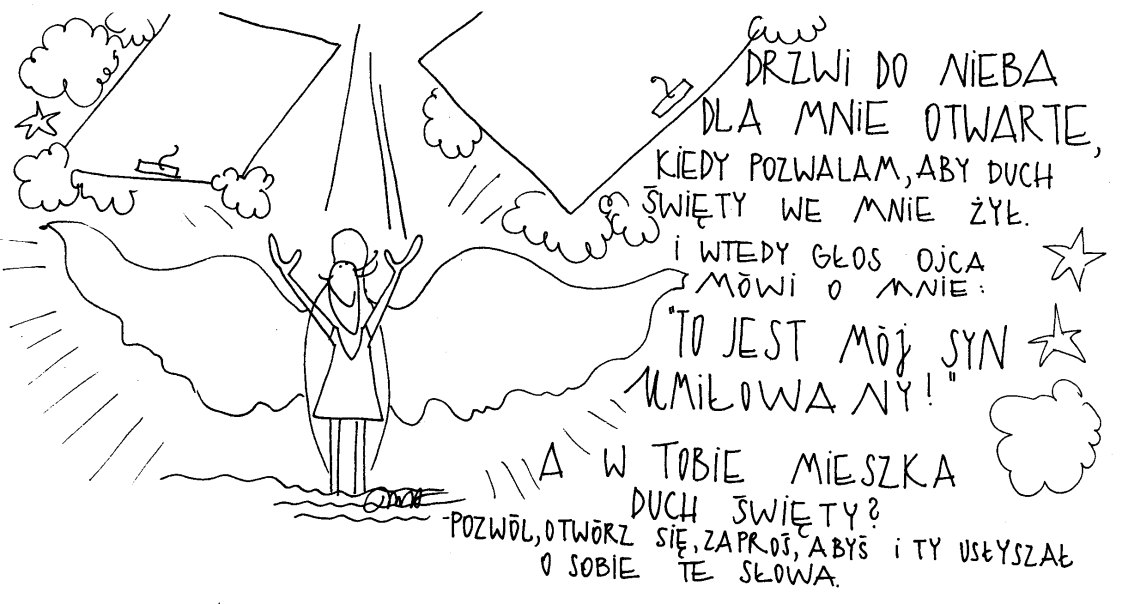 DRZWI DO NIEBA
DLA MNIE OTWARTE,
KIEDY POZWALAM, ABY DUCH
ŚWIĘTY WE MNIE ŻYŁ.
I WTEDY GŁOS OJCA
MÓWI O MNIE:
"TO JEST MÓJ SYN
UMIŁOWANY!"
A W TOBIE MIESZKA
DUCH ŚWIĘTY?
-POZWÓL, OTWÓRZ SIĘ, ZAPROŚ, ABYŚ I TY USŁYSZAŁ
O SOBIE TE SŁOWA.